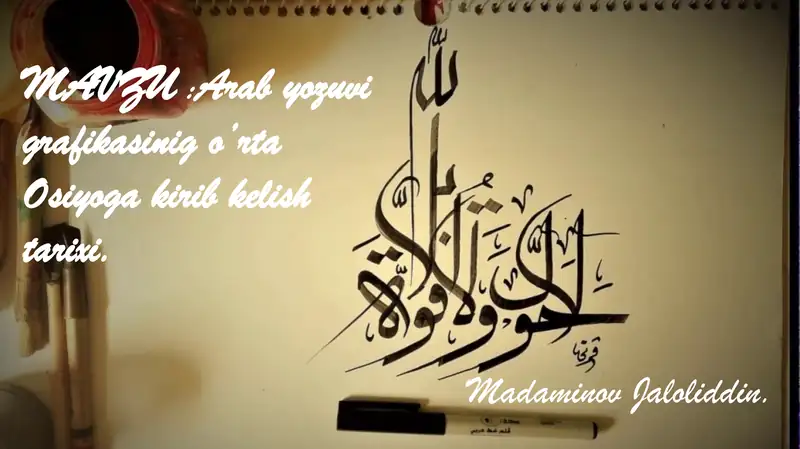 MAVZU :Arab yozuvi
grafikasinig o'rta
Osiyoga kirib kelish
tarixi.
لا حول ولا قوة إلا بالله
Madaminov Jaloliddin.
قلم خط عربي